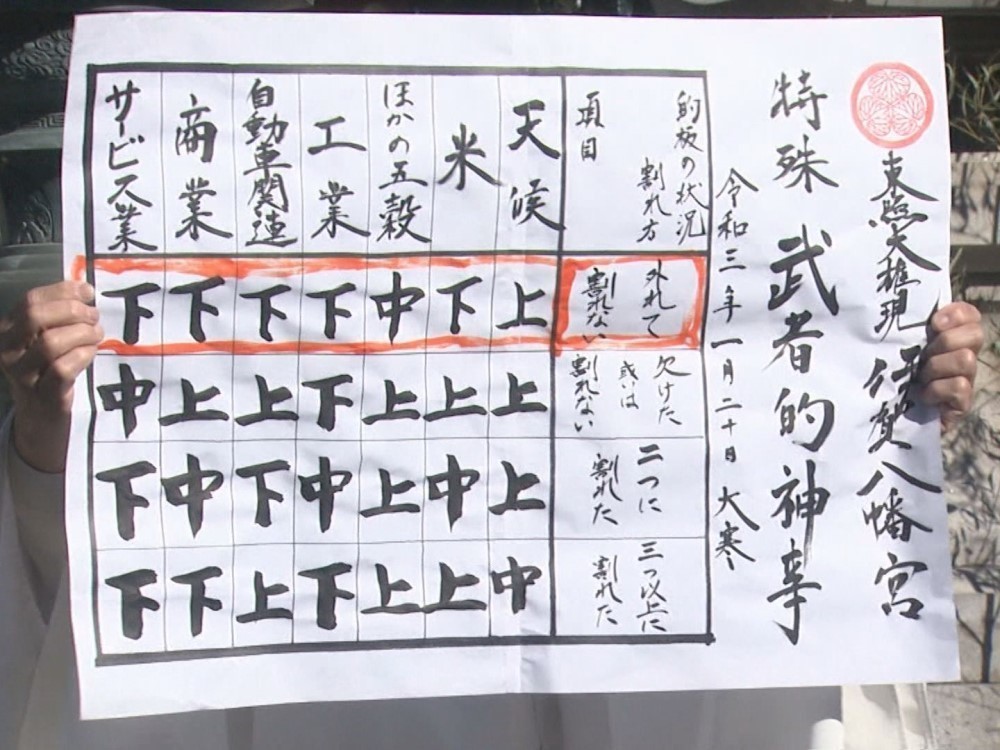 東照大権現 伊賀八幡宮
特殊 武者的神事
令和三年一月二十日 大寒
的板の状況
割れ方
項目
外れて
割れない
欠けた
或は
割れない
二つに
割れた
三つ以上に
割れた
天候
上
上
上
中
米
下
上
中
上
ほかの五穀
中
上
上
上
工業
下
下
中
下
自動車関連
下
上
下
上
商業
下
上
中
下
サービス業
下
中
下
下